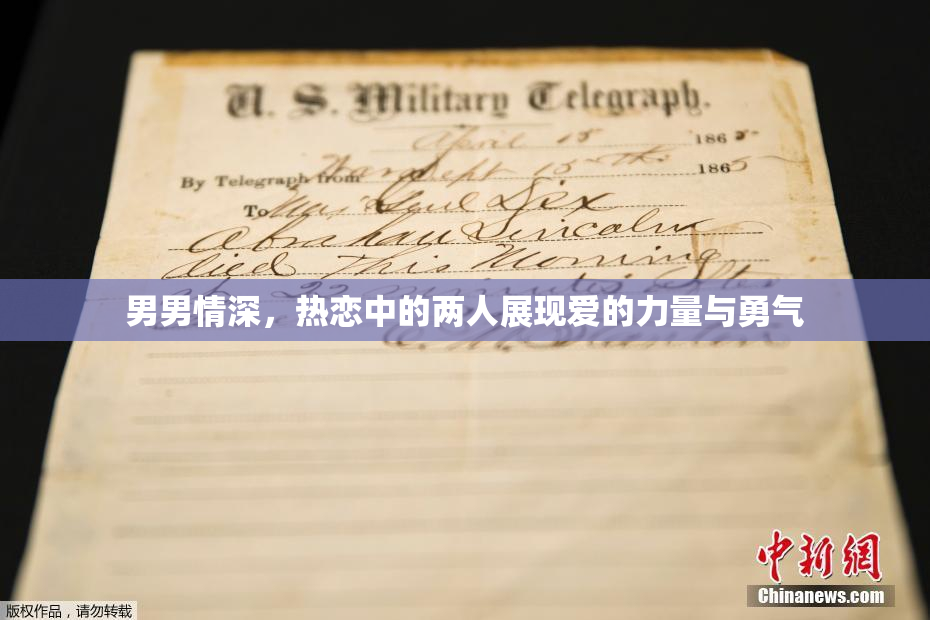 U. S. Military Telegraph.
April 15 1865
By Telegraph from War Dept 15th 1865
To Maj Genl Dix
Abraham Lincoln
died This Morning
at 22 minutes after
男男情深，热恋中的两人展现爱的力量与勇气
E. M. Stanton
中新网
Chinanews.com
版权作品，请勿转载